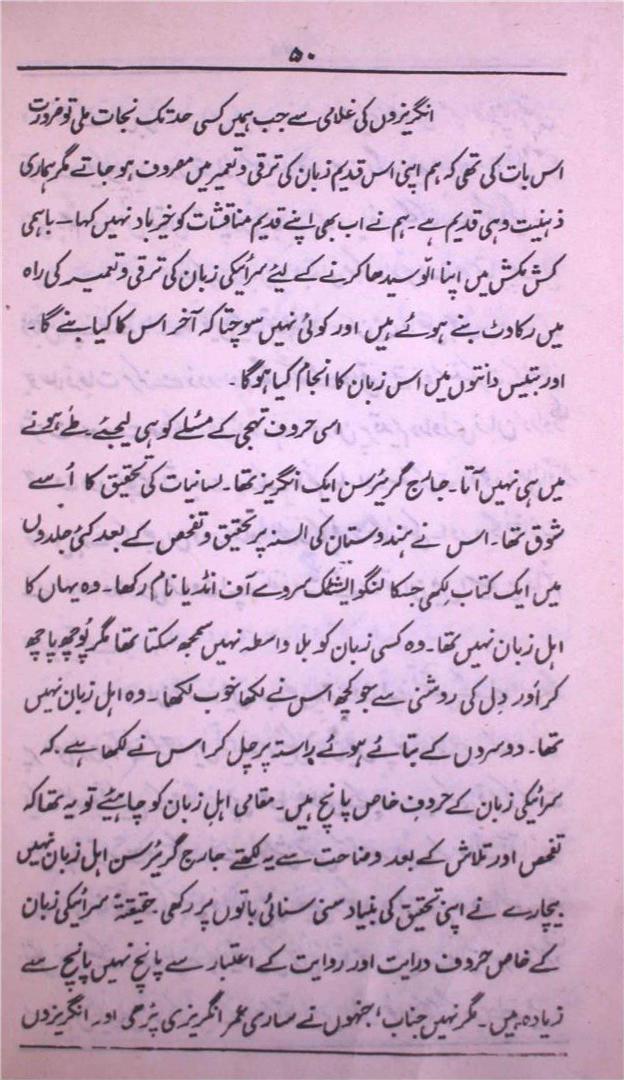 ۵۰
انگریزوں کی غلامی سے جب ہمیں کسی حد تک نجات ملی تو ضرورت
اس بات کی تھی کہ ہم اپنی اس قدیم زبان کی ترقی و تعمیر میں مصروف ہو جاتے مگر ہماری
ذہنیت وہی قدیم ہے۔ ہم نے اب بھی اپنے قدیم مناقشات کو خیر باد نہیں کہا۔ باہمی
کش مکش میں اپنا الّو سیدھا کرنے کے لیئے سرائیکی زبان کی ترقی و تعمیر کی راہ
میں رکاوٹ بنے ہوئے ہیں اور کوئی نہیں سوچتا کہ آخر اس کا کیا بنے گا۔
اور بتیس دانتوں میں اس زبان کا انجام کیا ہوگا۔
اسی حروف تہجی کے مسئلے کو ہی لیجئے۔ طے ہونے
میں ہی نہیں آتا۔ جارج گریئرسن ایک انگریز تھا۔ لسانیات کی تحقیق کا اُسے
شوق تھا۔ اس نے ہندوستان کی السنہ پر تحقیق و تفحص کے بعد کئی جلدوں
میں ایک کتاب لکھی جسکا لنگوایشٹک سروے آف انڈیا نام رکھا۔ وہ یہاں کا
اہل زبان نہیں تھا۔ وہ کسی زبان کو بلا واسطہ نہیں سمجھ سکتا تھا مگر پُوچھ پاچھ
کر اُور دِل کی روشنی سے جو کچھ اس نے لکھا خوب لکھا۔ وہ اہل زبان نہیں
تھا۔ دوسروں کے بتائے ہوئے راستہ پر چل کر اس نے لکھا ہے۔ کہ
سرائیکی زبان کے حروف خاص پانچ ہیں۔ مقامی اہل زبان کو چاہیئے تو یہ تھا کہ
تفحص اور تلاش کے بعد وضاحت سے یہ لکھتے جارج گریئرسن اہل زبان نہیں
بیچارے نے اپنی تحقیق کی بنیاد سنی سنائی باتوں پر رکھی۔ حقیقۃً سرائیکی زبان
کے خاص حروف درایت اور روایت کے اعتبار سے پانچ نہیں پانچ سے
زیادہ ہیں۔ مگر نہیں جناب! جنہوں نے ساری عمر انگریزی پڑھی اور انگریزوں